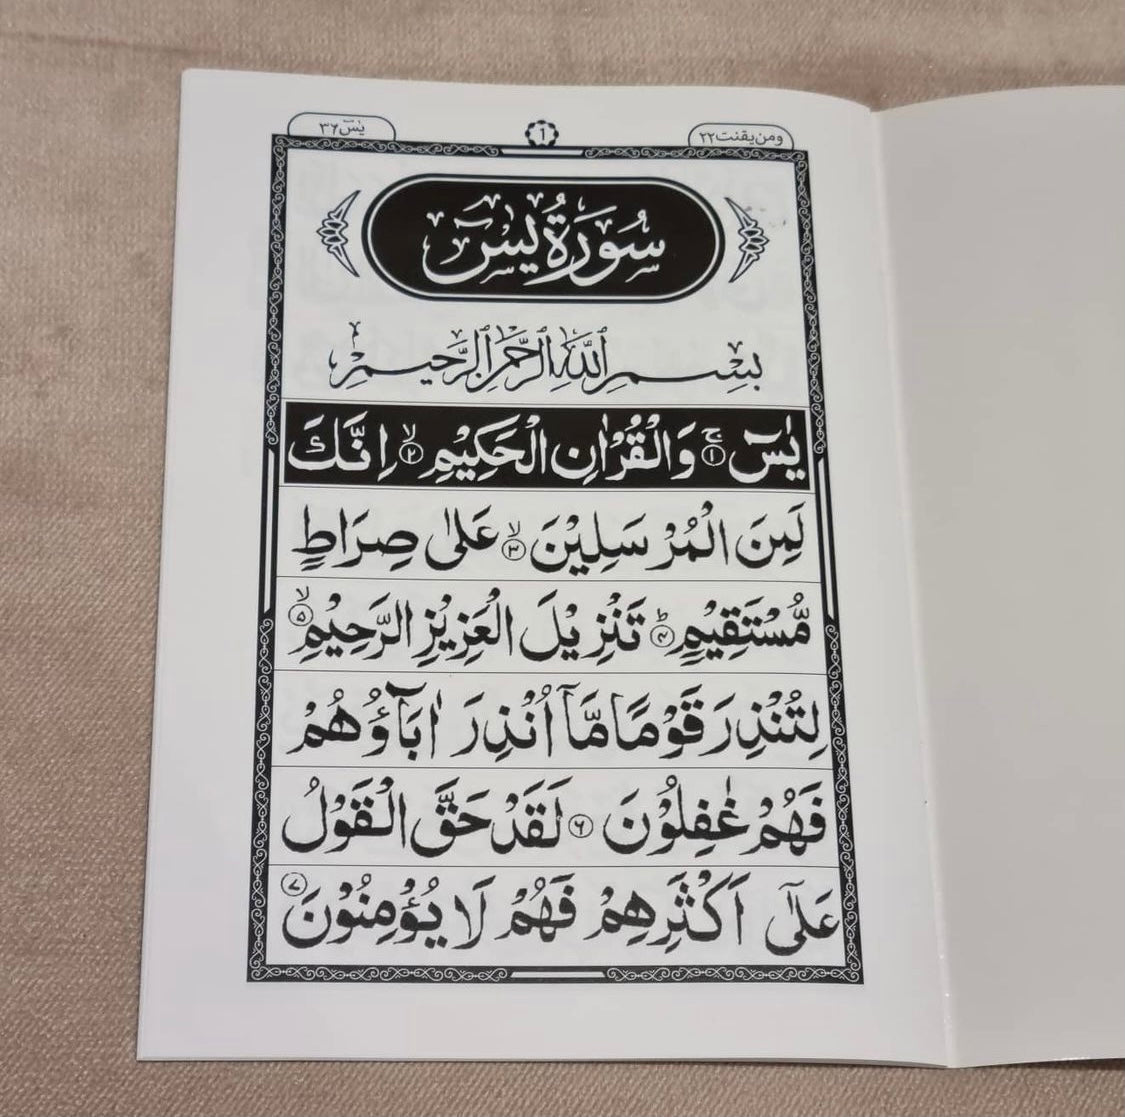 ومن یقنت ٢٢
١
یٰسٓ ٣٦
سُوۡرَةُ یٰسٓ
بِسْمِ اللّٰهِ الرَّحْمٰنِ الرَّحِيْمِ
يٰسٓ ۚ﴿۱﴾ وَالْقُرْاٰنِ الْحَكِيْمِ ۙ﴿۲﴾ اِنَّكَ
لَمِنَ الْمُرْسَلِيْنَ ۙ﴿۳﴾ عَلٰى صِرَاطٍ
مُّسْتَقِيْمٍ ؕ﴿۴﴾ تَنْزِيْلَ الْعَزِيْزِ الرَّحِيْمِ ۙ﴿۵﴾
لِتُنْذِرَ قَوْمًا مَّاۤ اُنْذِرَ اٰبَآؤُهُمْ
فَهُمْ غٰفِلُوْنَ ﴿۶﴾ لَقَدْ حَقَّ الْقَوْلُ
عَلٰٓى اَكْثَرِهِمْ فَهُمْ لَا يُؤْمِنُوْنَ ﴿۷﴾